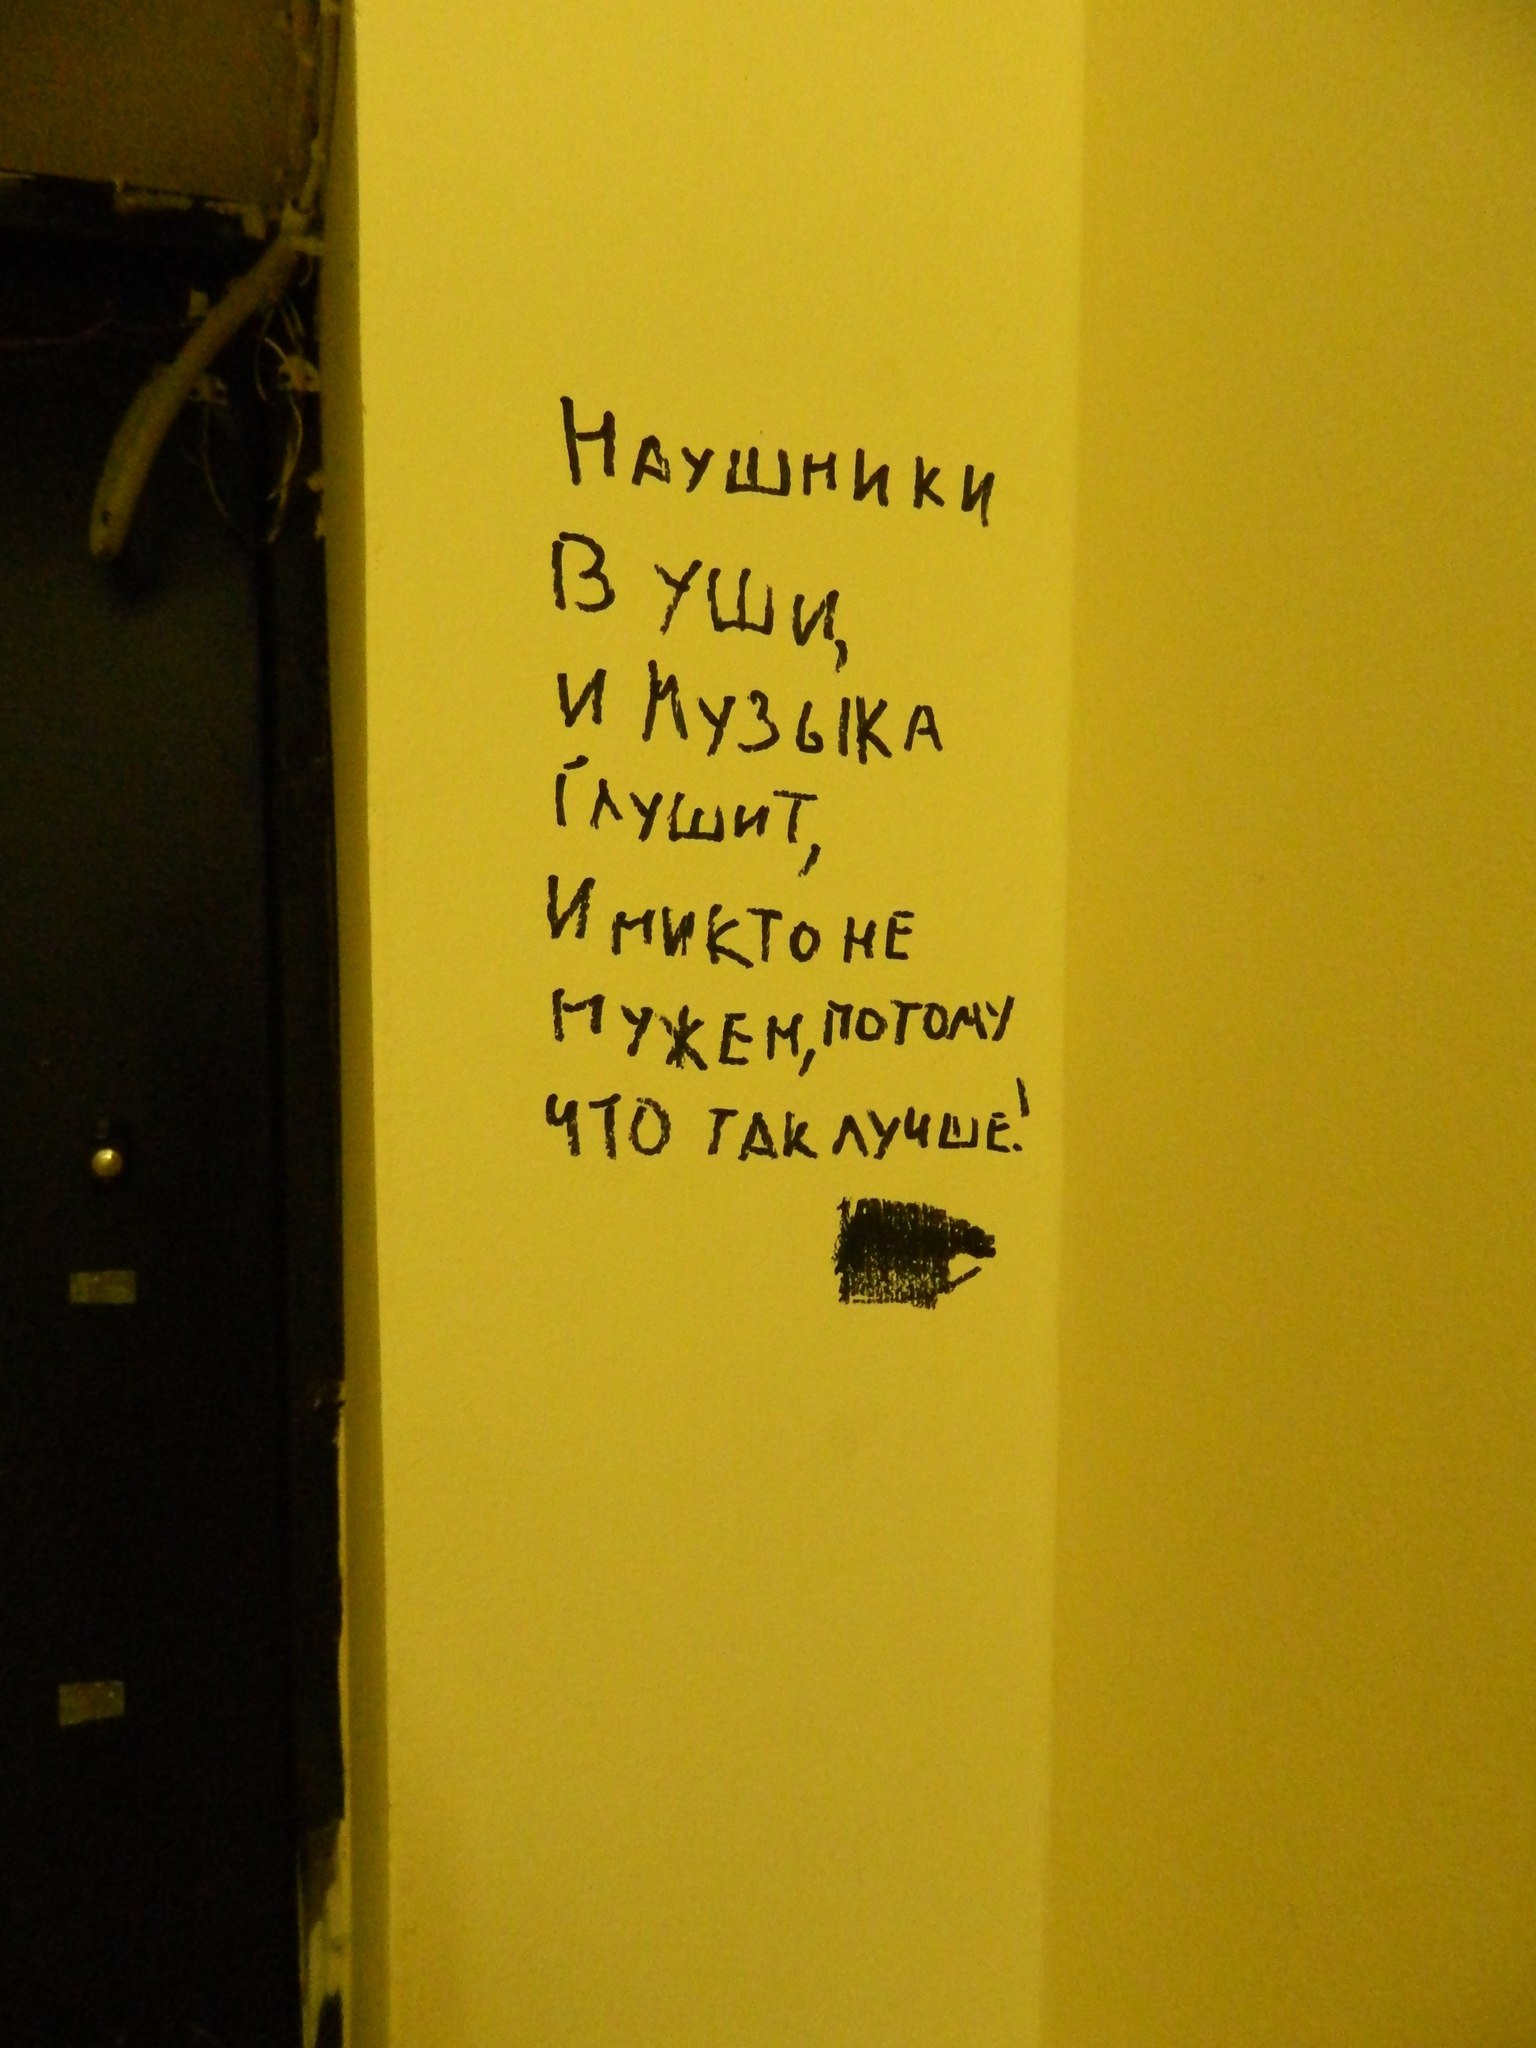 Наушники
В уши,
и музыка
глушит,
И никто не
нужен, потому
что так лучше!